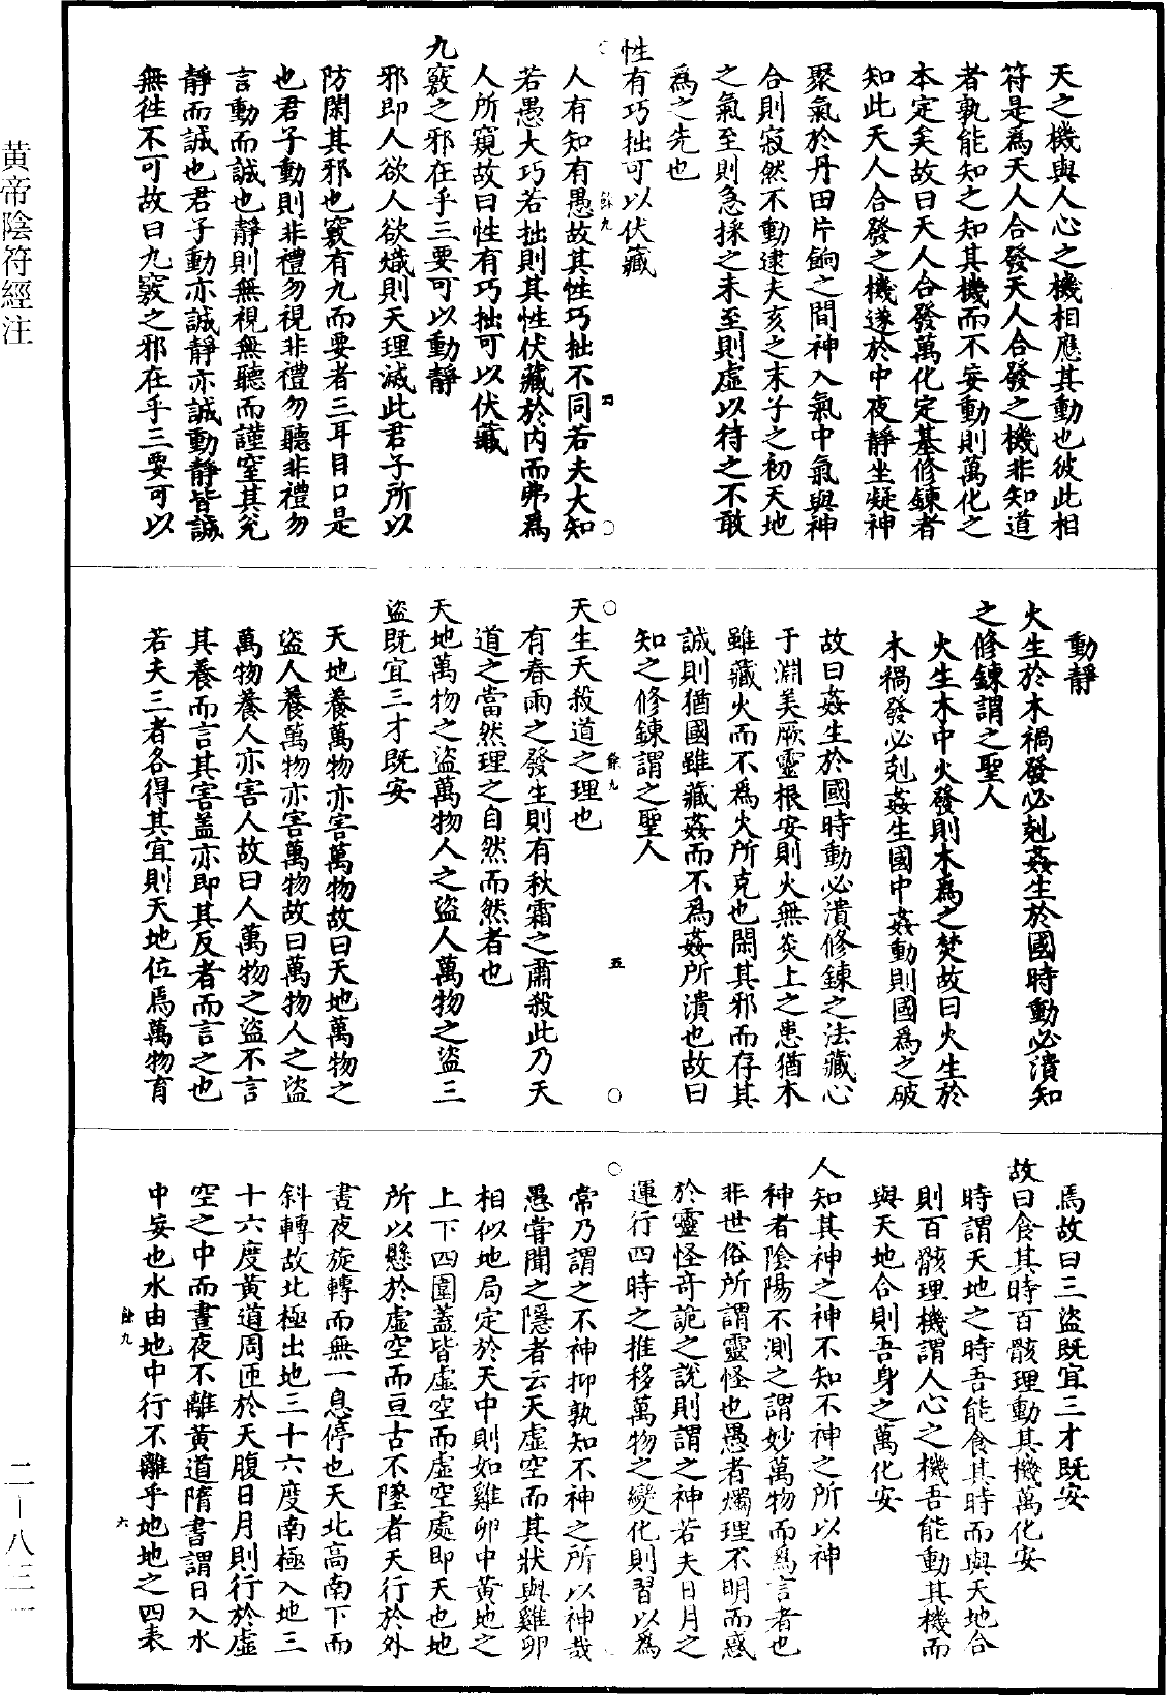 黃帝陰符經注
天之機與人心之機相應其動也彼此相
符是為天人合發天人合發之機非知道
者孰能知之知其機而不妄動則萬化之
本定矣故曰天人合發萬化定基修鍊者
知此天人合發之機遂於中夜靜坐凝神
聚氣於丹田片餉之間神入氣中氣與神
合則寂然不動逮夫亥之末子之初天地
之氣至則急採之未至則虛以待之不敢
為之先也
性有巧拙可以伏藏
餘九
四
人有知有愚故其性巧拙不同若夫大知
若愚大巧若拙則其性伏藏於內而弗為
人所窺故曰性有巧拙可以伏藏
九竅之邪在乎三要可以動靜
邪即人欲人欲熾則天理滅此君子所以
防閑其邪也竅有九而要者三耳目口是
也君子動則非禮勿視非禮勿聽非禮勿
言動而誠也靜則無視無聽而謹窒其兊
靜而誠也君子動亦誠靜亦誠動靜皆誠
無徃不可故曰九竅之邪在乎三要可以
動靜
火生於木禍發必剋姦生於國時動必潰知
之修鍊謂之聖人
火生木中火發則木為之焚故曰火生於
木禍發必剋姦生國中姦動則國為之破
故曰姦生於國時動必潰修鍊之法藏心
于淵美厥靈根安則火無炎上之患猶木
雖藏火而不為火所克也閑其邪而存其
誠則猶國雖藏姦而不為姦所潰也故曰
知之修鍊謂之聖人
餘九
五
天生天殺道之理也
有春雨之發生則有秋霜之肅殺此乃天
道之當然理之自然而然者也
天地萬物之盜萬物人之盜人萬物之盜三
盜既宜三才既安
天地養萬物亦害萬物故曰天地萬物之
盜人養萬物亦害萬物故曰萬物人之盜
萬物養人亦害人故曰人萬物之盜不言
其養而言其害蓋亦即其反者而言之也
若夫三者各得其宜則天地位焉萬物育
焉故曰三盜既宜三才既安
故曰食其時百骸理動其機萬化安
時謂天地之時吾能食其時而與天地合
則百骸理機謂人心之機吾能動其機而
與天地合則吾身之萬化安
人知其神之神不知不神之所以神
神者陰陽不測之謂妙萬物而為言者也
非世俗所謂靈怪也愚者燭理不明而惑
於靈怪奇詭之說則謂之神若夫日月之
運行四時之推移萬物之變化則習以為
常乃謂之不神抑孰知不神之所以神哉
愚嘗聞之隱者云天虛空而其狀與雞卵
相似地局定於天中則如雞卵中黃地之
上下四圍蓋皆虛空而虛空處即天也地
所以懸於虛空而亘古不墜者天行於外
晝夜旋轉而無一息停也天北高南下而
斜轉故北極出地三十六度南極入地三
十六度黃道周匝於天腹日月則行於虛
空之中而晝夜不離黃道隋書謂日入水
中妄也水由地中行不離乎地地之四表
餘九
六
二—八三一